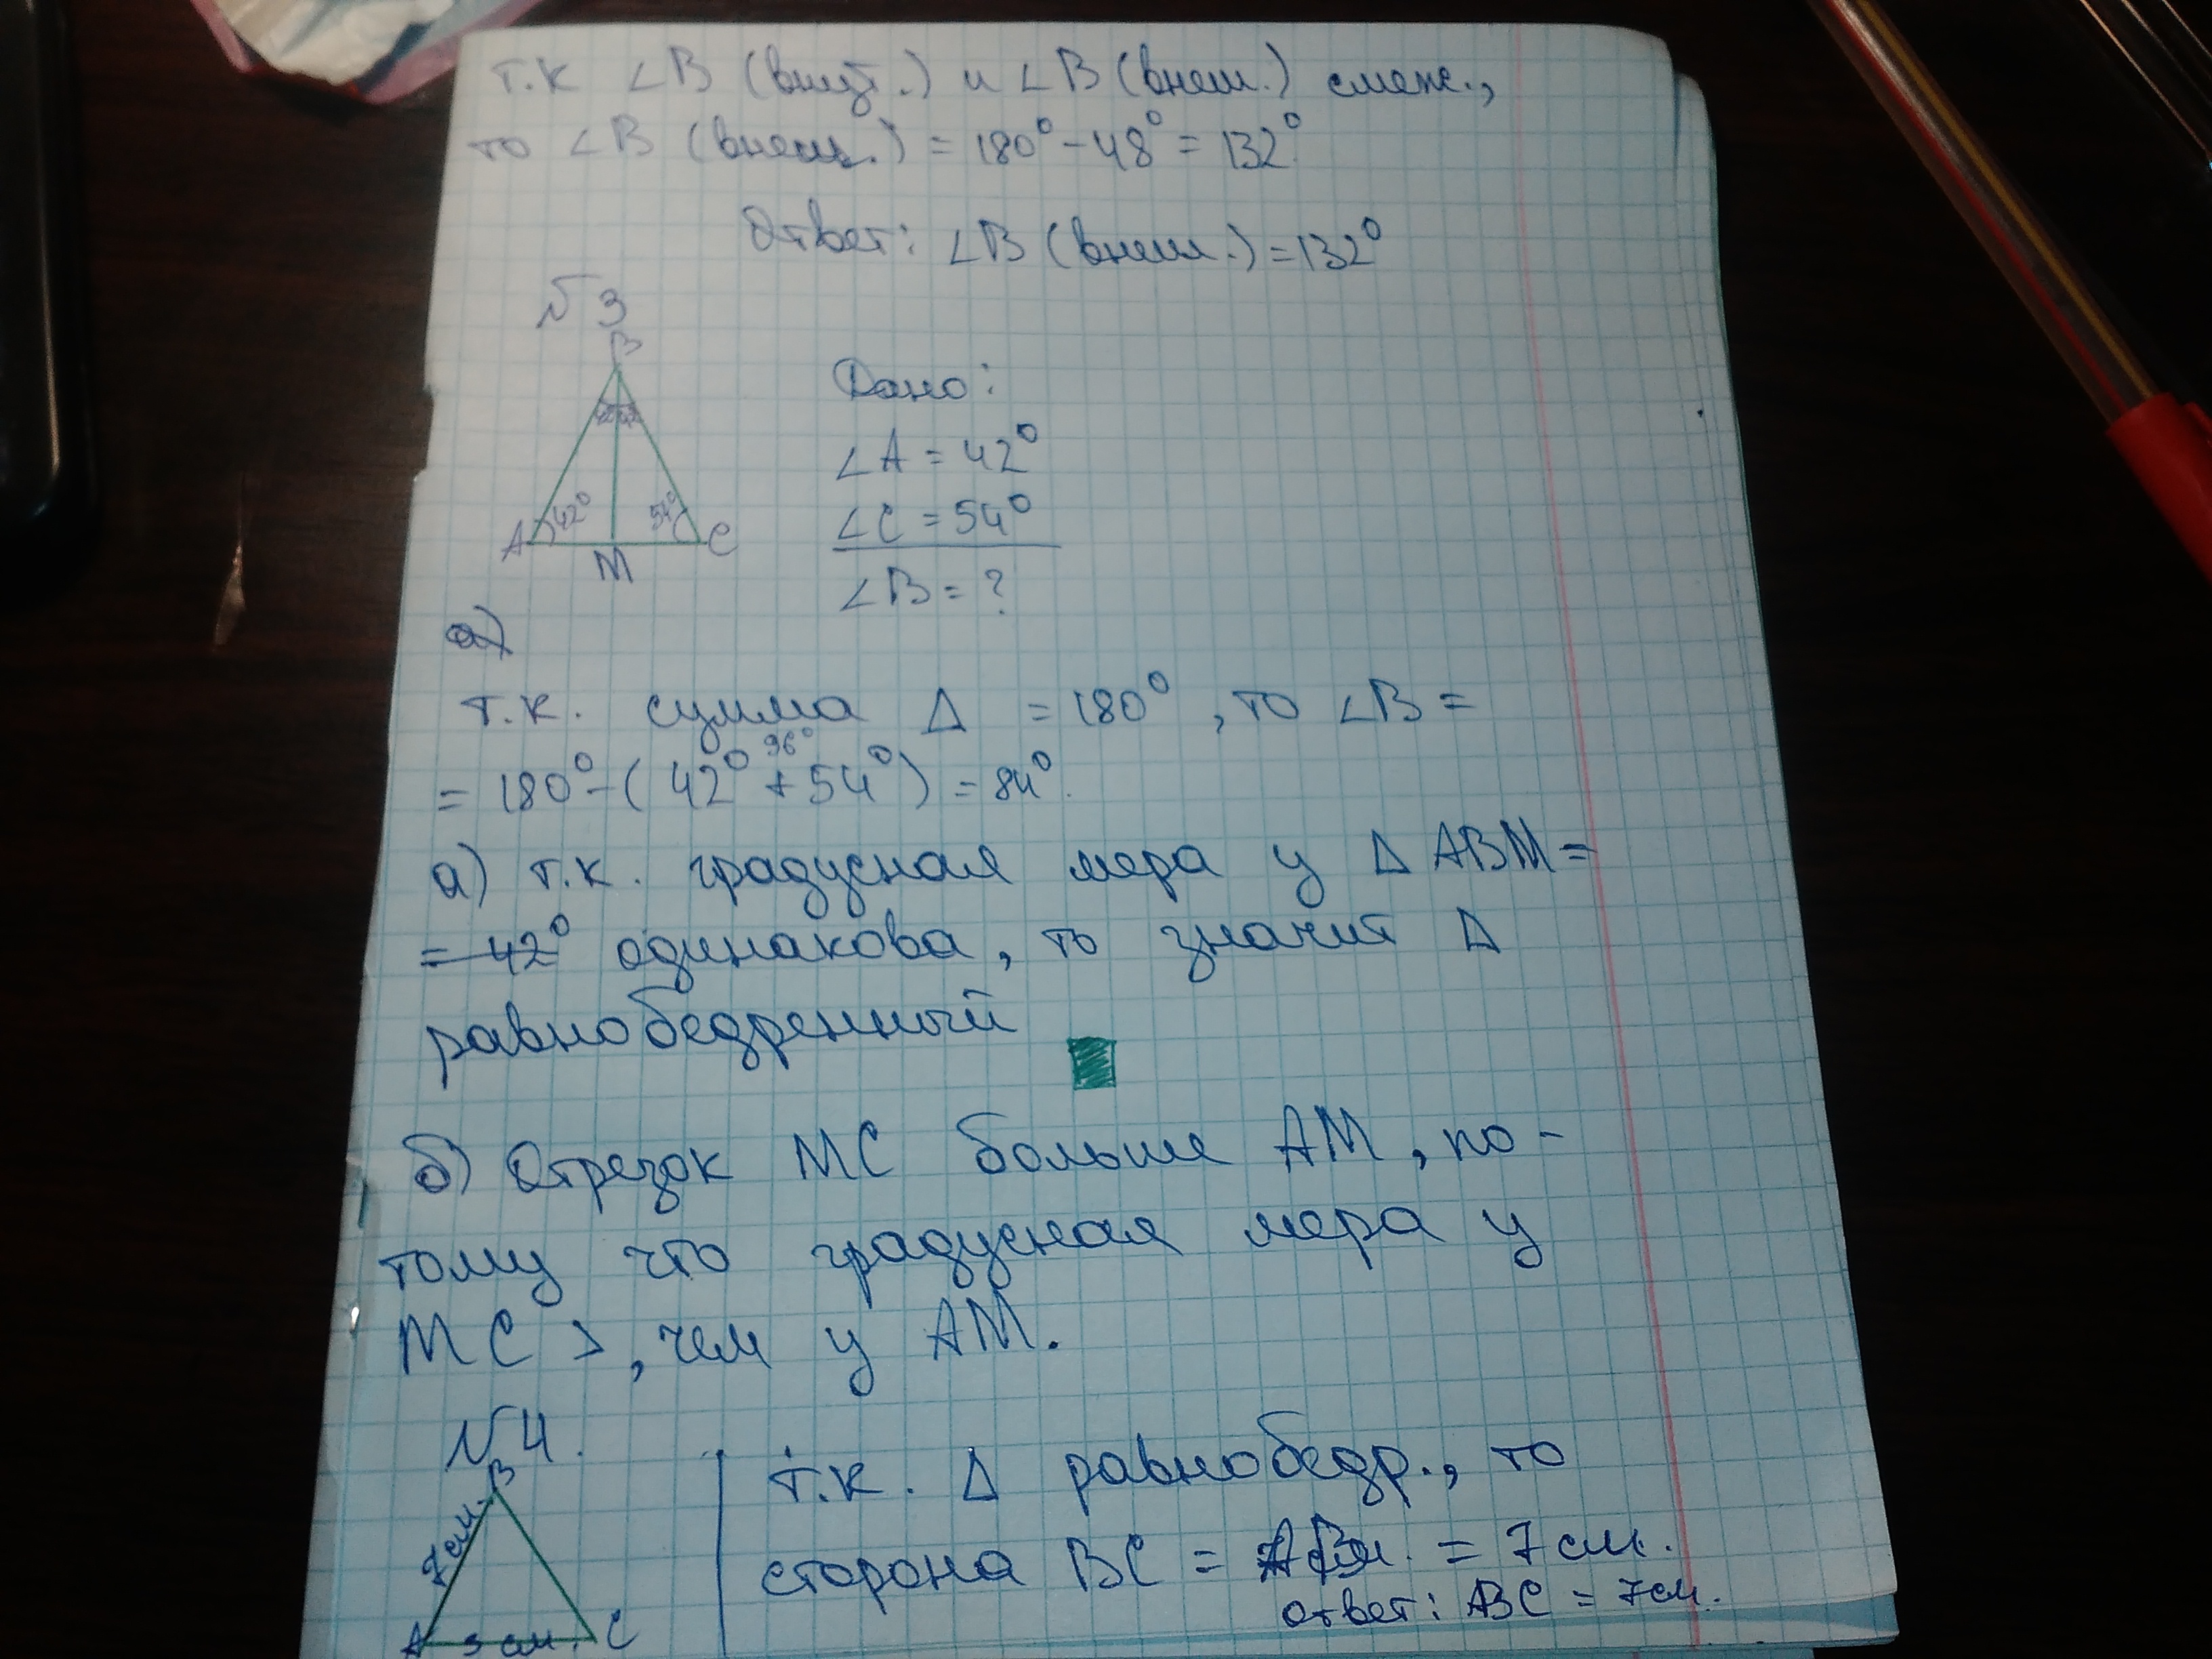 т.к ∠B (внут.) и ∠B (внеш.) смеж.,
то ∠B (внеш.) = 180° - 48° = 132°.
Ответ: ∠B (внеш.) = 132°
№3
B
Дано:
∠A = 42°
∠C = 54°
∠B = ?
42° 54°
A M C
а)
т.к. сумма Δ = 180°, то ∠B =
96°
= 180° - (42° + 54°) = 84°.
а) т.к. градусная мера у Δ ABM =
= 42° одинакова, то значит Δ
равнобедренный
б) Отрезок MC больше AM, по-
тому что градусная мера у
MC >, чем у AM.
№4.
B
7 см.
A 3 см. C
т.к. Δ равнобедр., то
сторона BC = AB = 7 см.
ответ: BC = 7см.